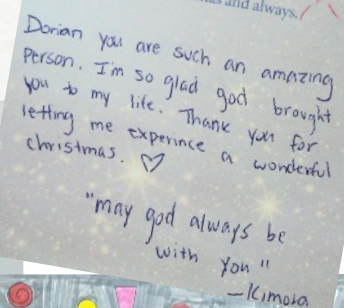 and always.
Dorian you are such an amazing
person. I'm so glad god brought
you to my life. Thank you for
letting me experince a wonderful
christmas. ♡
"may god always be
with you"
—Kimora